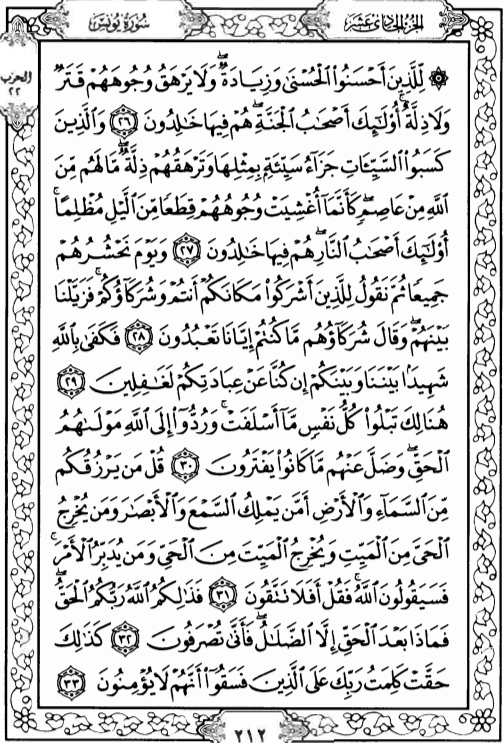 سُورَةُ يُونُسَ
الجُزْءُ الحَادِي عَشَرَ
الحِزْب
٢٢
۞ لِّلَّذِينَ أَحْسَنُوا۟ ٱلْحُسْنَىٰ وَزِيَادَةٌۖ وَلَا يَرْهَقُ وُجُوهَهُمْ قَتَرٌ
وَلَا ذِلَّةٌۚ أُو۟لَٰٓئِكَ أَصْحَٰبُ ٱلْجَنَّةِۖ هُمْ فِيهَا خَٰلِدُونَ ٢٦ وَٱلَّذِينَ
كَسَبُوا۟ ٱلسَّيِّـَٔاتِ جَزَآءُ سَيِّئَةٍۭ بِمِثْلِهَا وَتَرْهَقُهُمْ ذِلَّةٌۖ مَّا لَهُم مِّنَ
ٱللَّهِ مِنْ عَاصِمٍۖ كَأَنَّمَآ أُغْشِيَتْ وُجُوهُهُمْ قِطَعًا مِّنَ ٱلَّيْلِ مُظْلِمًاۚ
أُو۟لَٰٓئِكَ أَصْحَٰبُ ٱلنَّارِۖ هُمْ فِيهَا خَٰلِدُونَ ٢٧ وَيَوْمَ نَحْشُرُهُمْ
جَمِيعًا ثُمَّ نَقُولُ لِلَّذِينَ أَشْرَكُوا۟ مَكَانَكُمْ أَنتُمْ وَشُرَكَآؤُكُمْۚ فَزَيَّلْنَا
بَيْنَهُمْۖ وَقَالَ شُرَكَآؤُهُم مَّا كُنتُمْ إِيَّانَا تَعْبُدُونَ ٢٨ فَكَفَىٰ بِٱللَّهِ
شَهِيدًۢا بَيْنَنَا وَبَيْنَكُمْ إِن كُنَّا عَنْ عِبَادَتِكُمْ لَغَٰفِلِينَ ٢٩
هُنَالِكَ تَبْلُوا۟ كُلُّ نَفْسٍ مَّآ أَسْلَفَتْۚ وَرُدُّوٓا۟ إِلَى ٱللَّهِ مَوْلَىٰهُمُ
ٱلْحَقِّۖ وَضَلَّ عَنْهُم مَّا كَانُوا۟ يَفْتَرُونَ ٣٠ قُلْ مَن يَرْزُقُكُم
مِّنَ ٱلسَّمَآءِ وَٱلْأَرْضِ أَمَّن يَمْلِكُ ٱلسَّمْعَ وَٱلْأَبْصَٰرَ وَمَن يُخْرِجُ
ٱلْحَىَّ مِنَ ٱلْمَيِّتِ وَيُخْرِجُ ٱلْمَيِّتَ مِنَ ٱلْحَىِّ وَمَن يُدَبِّرُ ٱلْأَمْرَۚ
فَسَيَقُولُونَ ٱللَّهُۚ فَقُلْ أَفَلَا تَتَّقُونَ ٣١ فَذَٰلِكُمُ ٱللَّهُ رَبُّكُمُ ٱلْحَقُّۖ
فَمَاذَا بَعْدَ ٱلْحَقِّ إِلَّا ٱلضَّلَٰلُۖ فَأَنَّىٰ تُصْرَفُونَ ٣٢ كَذَٰلِكَ
حَقَّتْ كَلِمَتُ رَبِّكَ عَلَى ٱلَّذِينَ فَسَقُوٓا۟ أَنَّهُمْ لَا يُؤْمِنُونَ ٣٣
٢١٢